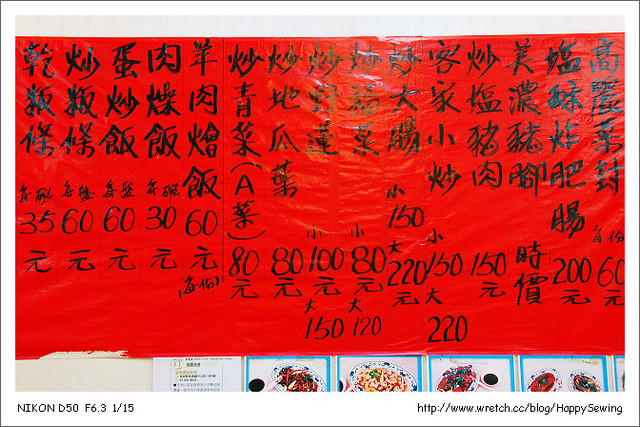 高麗菜封 每份 60元
塩酥炸肥腸 200元
美濃豬腳 時價
炒塩豬肉 150元
客家小炒 小150 大220
炒大腸 小150 大220元
炒福菜 小80元 大120
炒野蓮 小100元 大150
炒地瓜葉 80元
炒青菜(A菜) 80元
羊肉燴飯 60元(每份)
肉燥飯 每碗30元
蛋炒飯 每盤60元
炒粄條 每盤60元
乾粄條 每碗35元
NIKON D50 F6.3 1/15
http://www.wretch.cc/blog/HappySewing